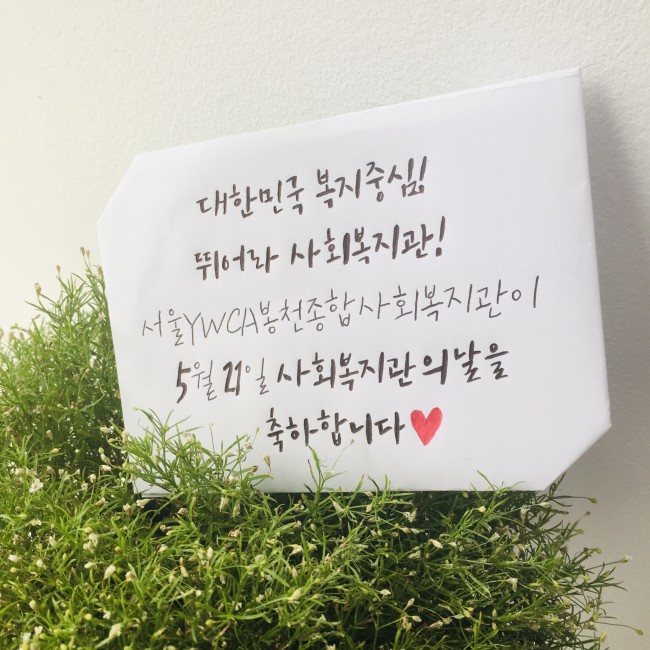 대한민국 복지중심!
뛰어라 사회복지관!
서울YWCA봉천종합사회복지관이
5월 21일 사회복지관의날을
축하합니다♥